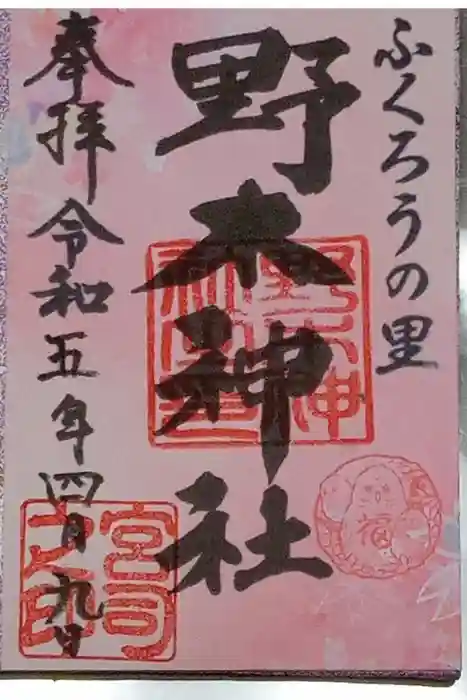 ふくろうの里
野木神社
奉拝 令和五年四月九日
野木神社
宮司之印
福